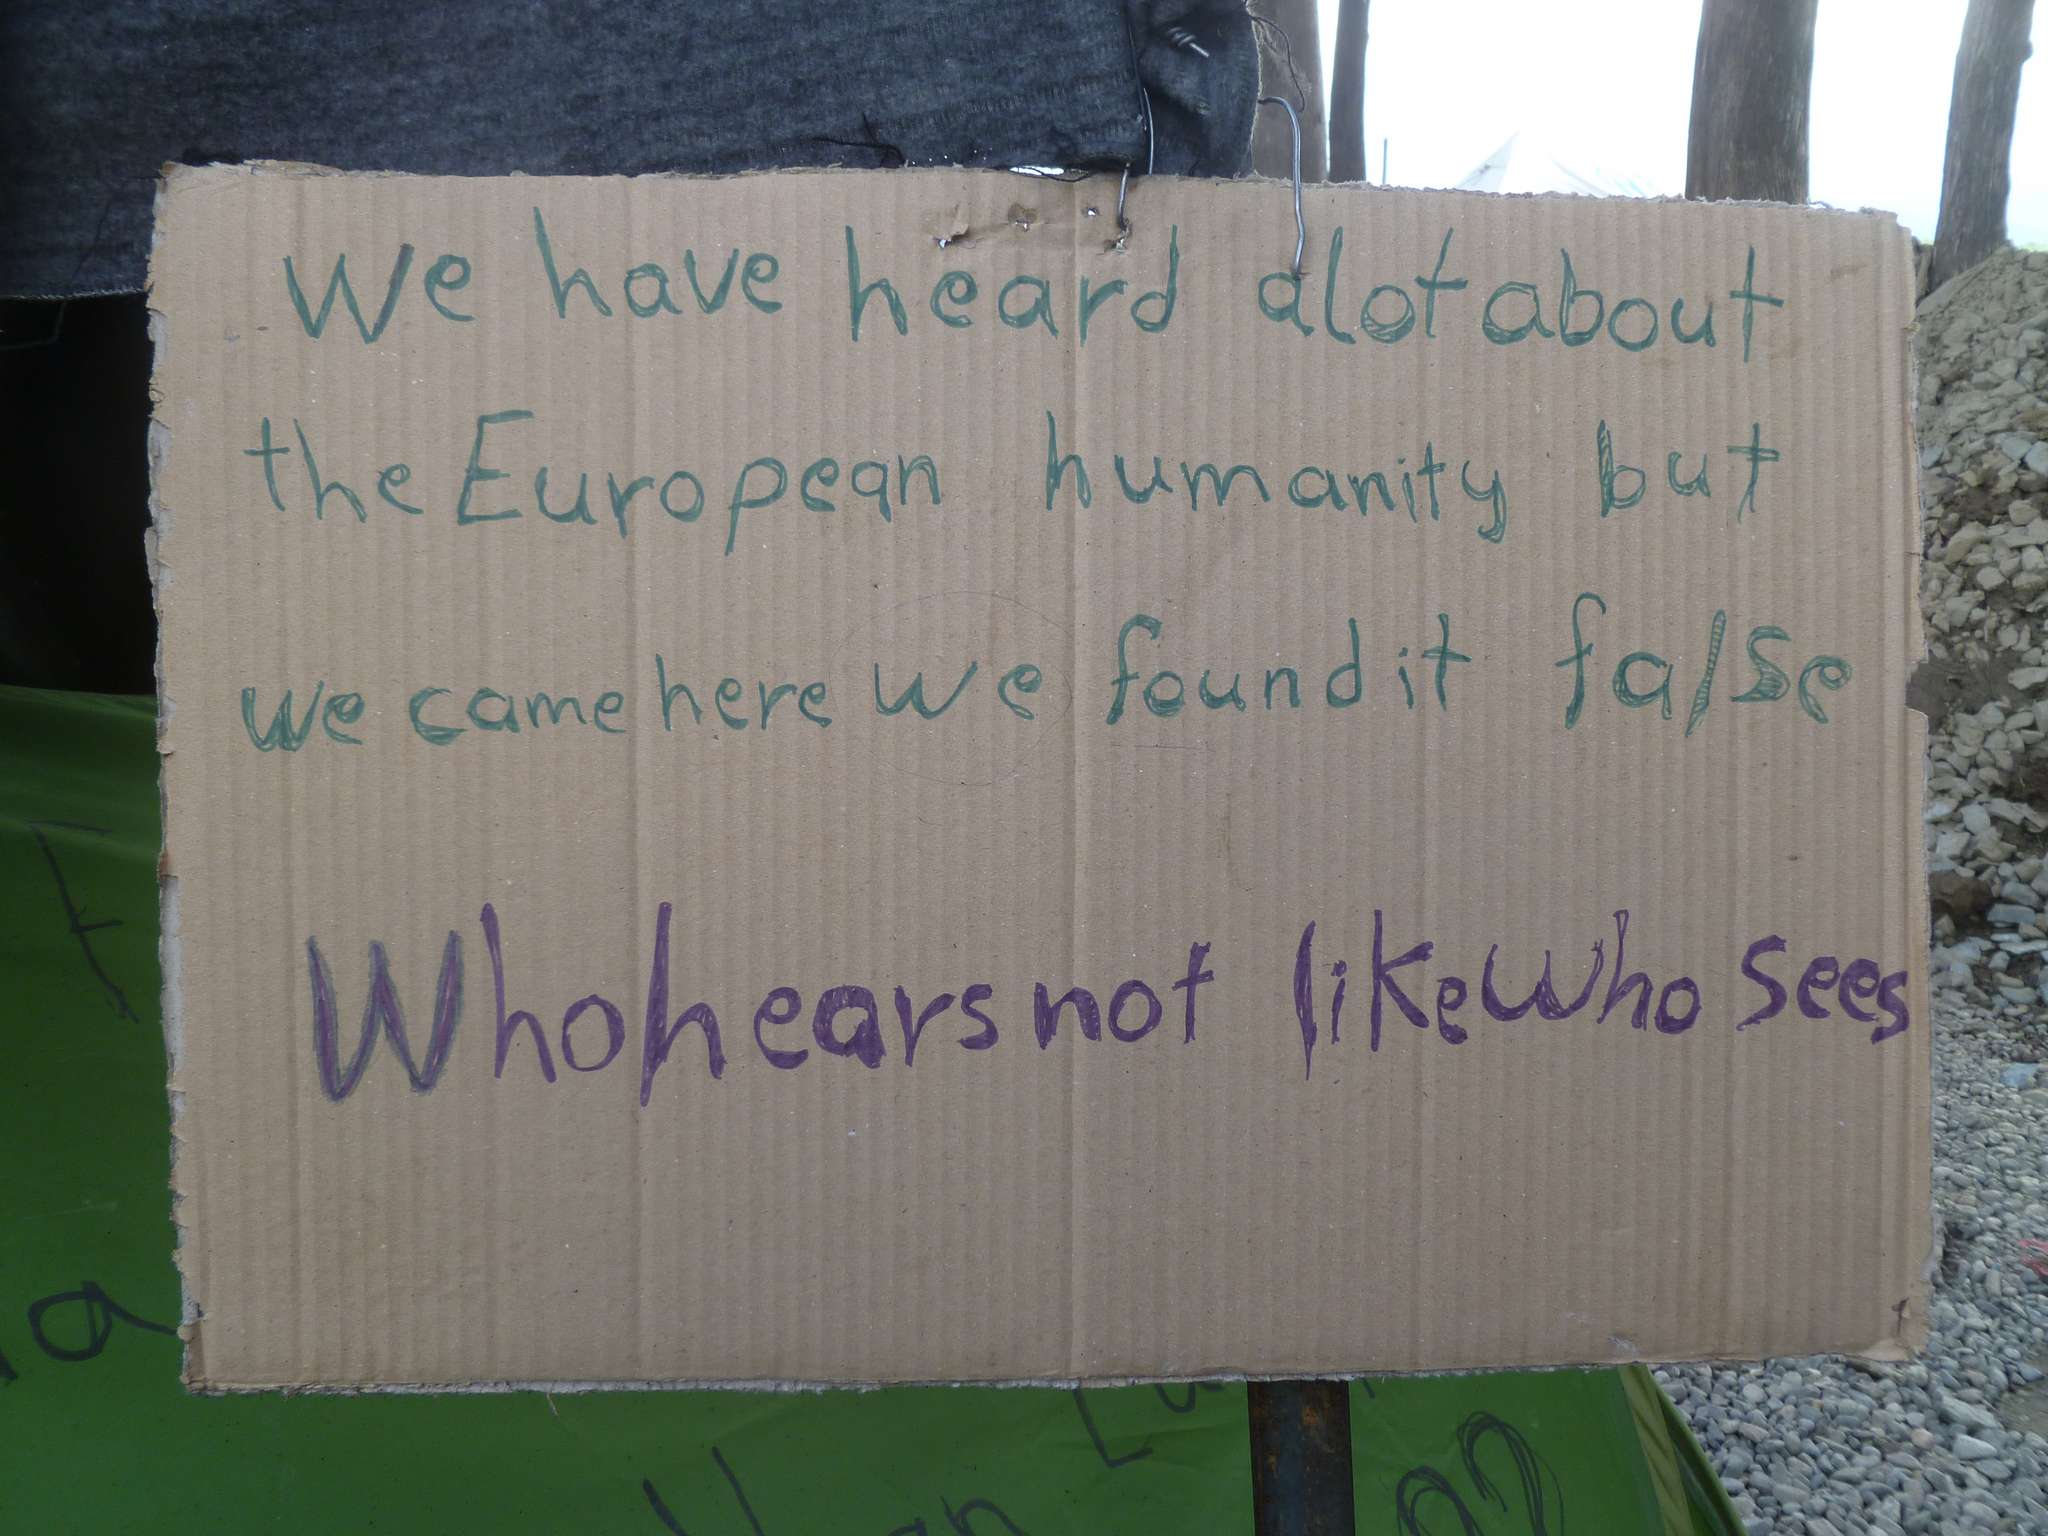 We have heard alot about
the European humanity but
we came here we found it false
Who hears not like who sees